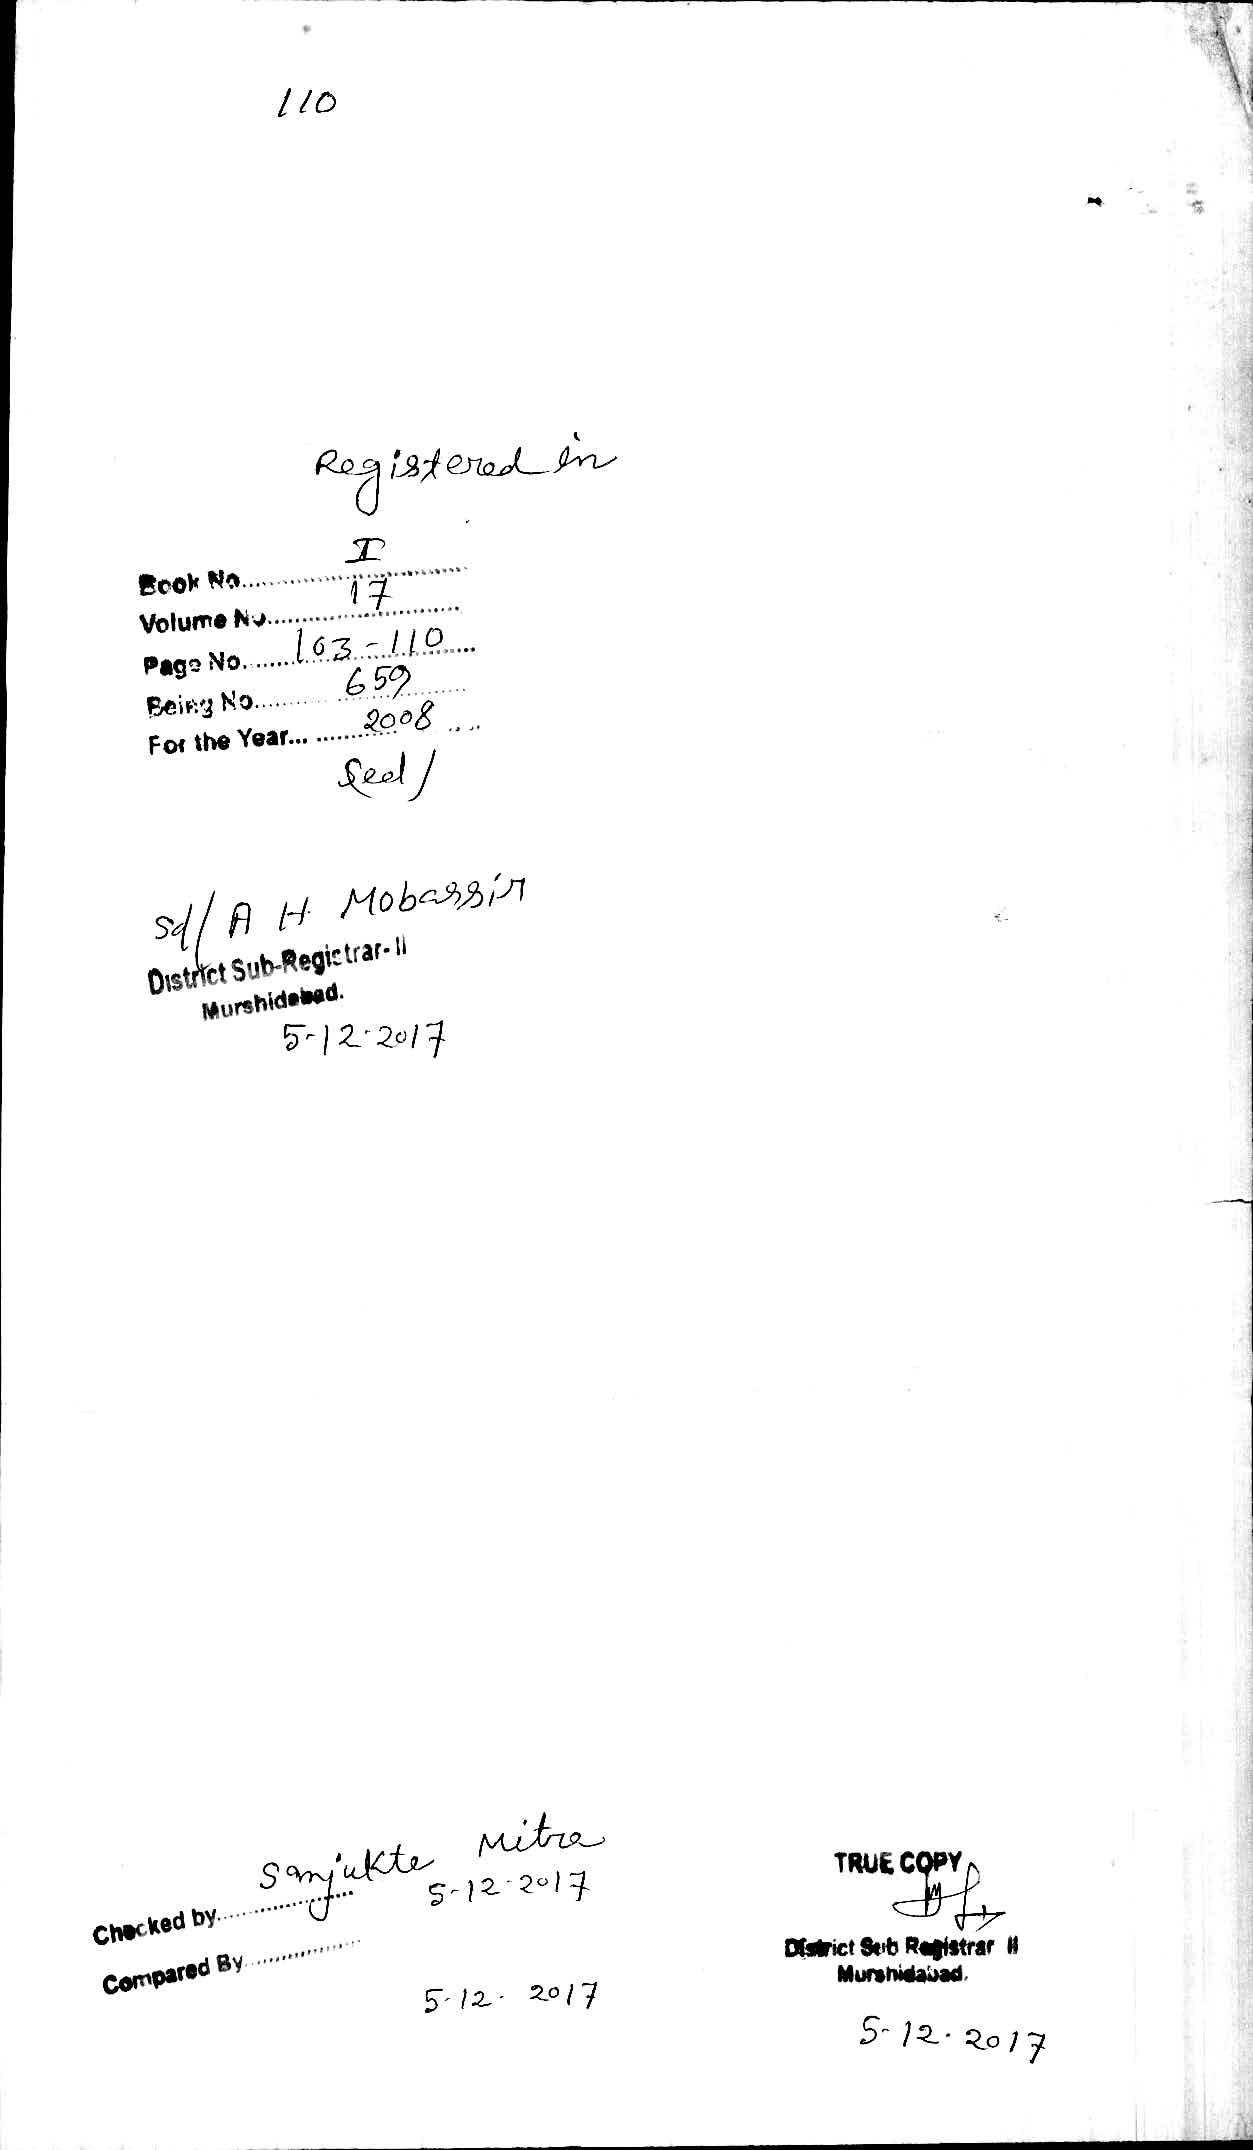 110
Registered in
Book No. I
Volume No. 17
Page No. 103-110
Being No. 659
For the Year... 2008
Seal/
Sd/ A H Mobassir
District Sub-Registrar-II
Murshidabad.
5-12-2017
Checked by Sanjukta Mitra
5-12-2017
Compared By
5-12-2017
TRUE COPY
District Sub Registrar II
Murshidabad.
5-12-2017